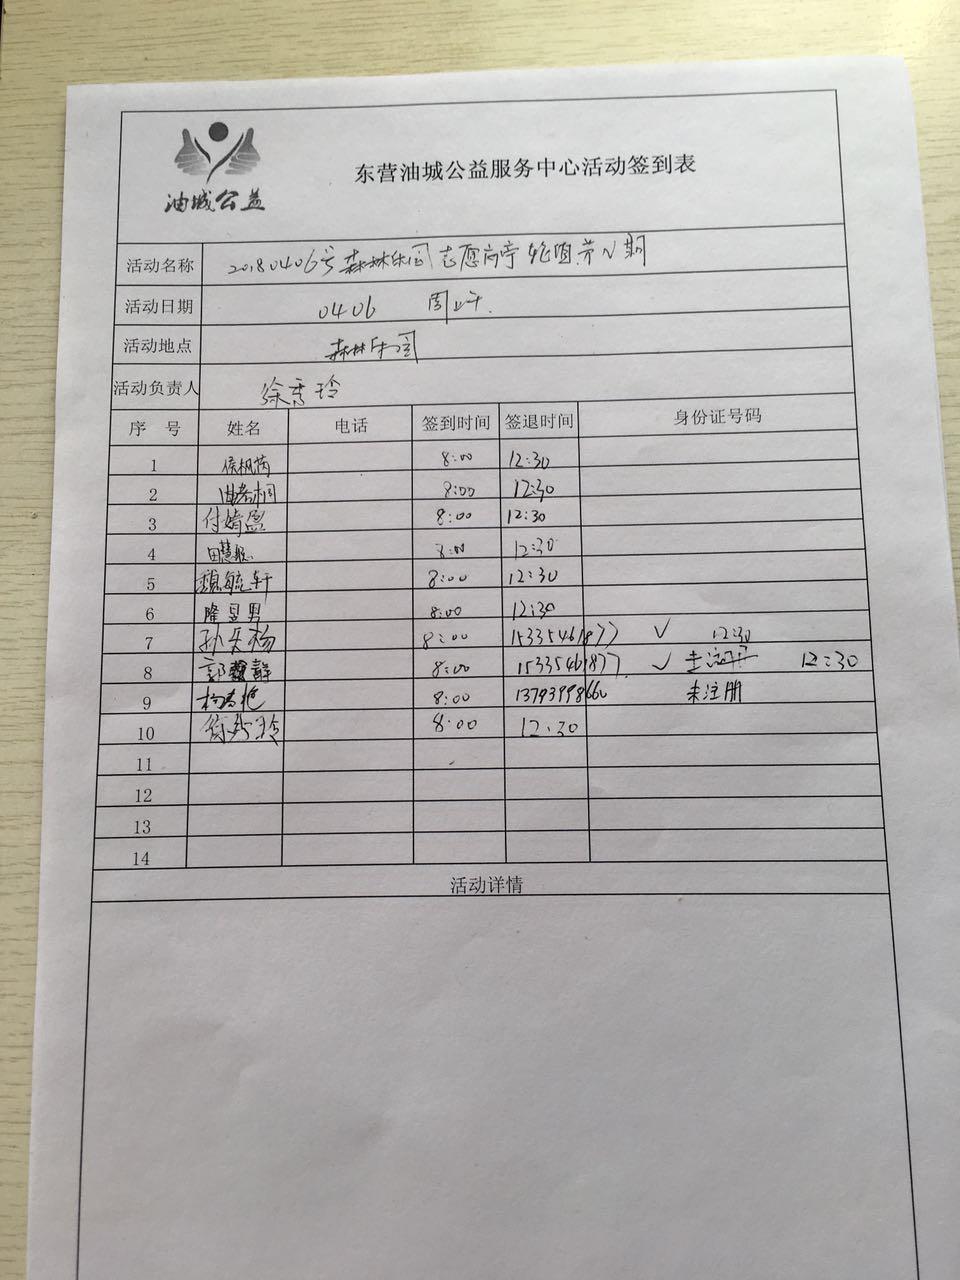 油城公益
东营油城公益服务中心活动签到表
活动名称 20180406号森林乐园志愿岗亭轮值第N期
活动日期 0406 周上午.
活动地点 森林乐园
活动负责人 徐秀玲
序 号 姓名 电话 签到时间 签退时间 身份证号码
1 侯枫芮 8:00 12:30
2 8:00 12:30
3 付婧盈 8:00 12:30
4 田慧 8:00 12:30
5 魏毓轩 8:00 12:30
6 隆昱男 8:00 12:30
7 孙天杨 8:00 15335461877 ✓ 12:30
8 郭 静 8:00 15335461877. ✓ 未注册 12:30
9 8:00 13793998660 未注册
10 徐秀玲 8:00 12:30
11
12
13
14
活动详情